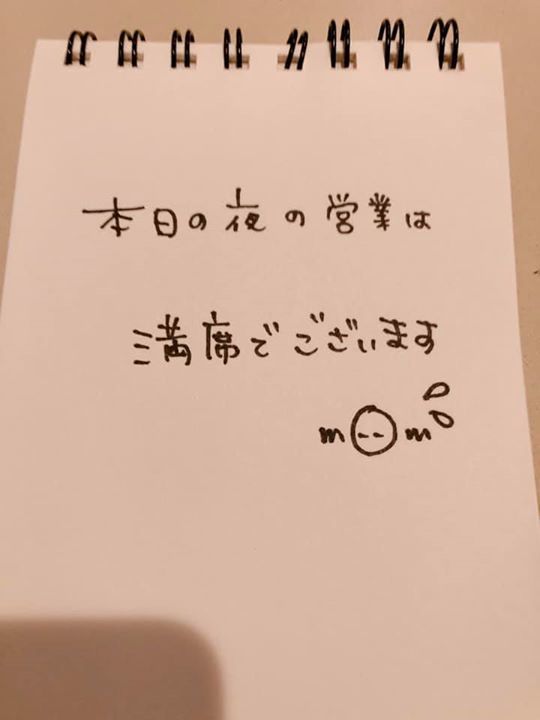 本日の夜の営業は
満席でございます
m(--)m